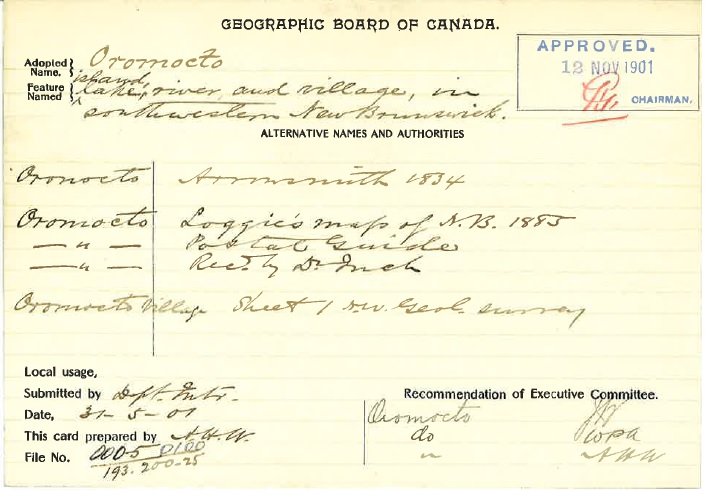 GEOGRAPHIC BOARD OF CANADA.
Adopted Name. } Oromocto
APPROVED.
12 NOV 1901
CHAIRMAN.
Feature Named } island, lake, river, and village, in
southwestern New Brunswick.
ALTERNATIVE NAMES AND AUTHORITIES
Oronocto Arrowsmith 1834
Oromocto Loggie's map of N.B. 1885
— " — Postal Guide
— " — Rec'd by Dr Inch
Oromocto Village Sheet 1 N.W. Geol. survey
Local usage,
Submitted by Dpt. Intr.
Date, 31-5-01
This card prepared by A.H.W.
File No. 0005 0100
193-200-25
Recommendation of Executive Committee.
Oromocto
do WPA
" AHW